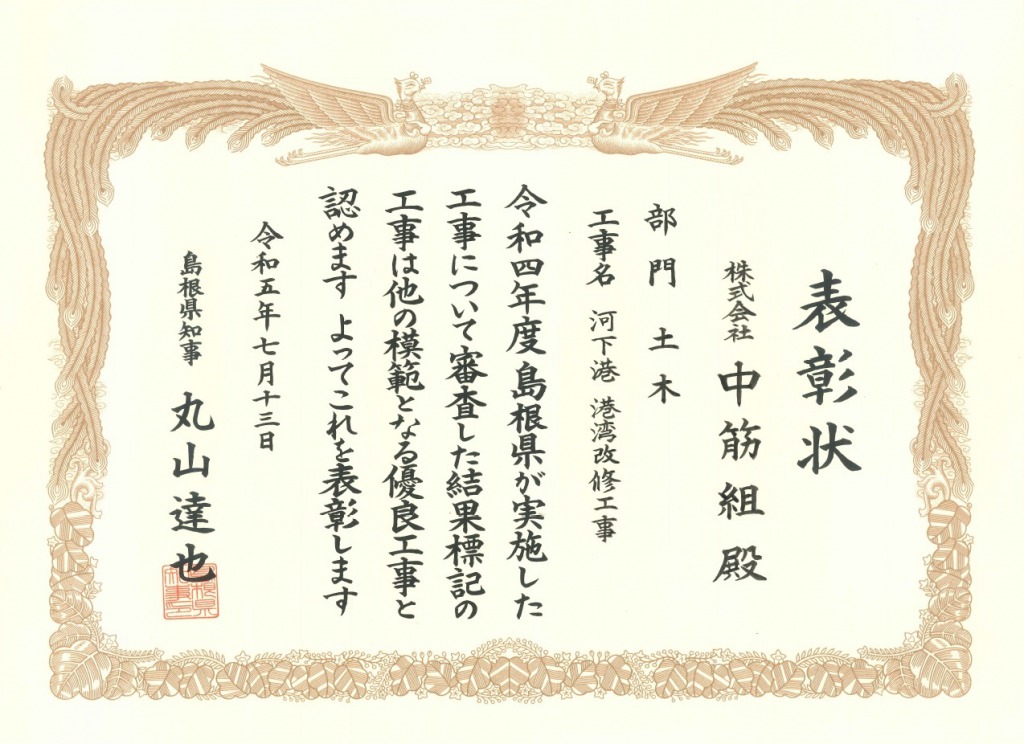 表彰状
株式会社 中筋組 殿
部門 土木
工事名 河下港 港湾改修工事
令和四年度島根県が実施した
工事について審査した結果標記の
工事は他の模範となる優良工事と
認めます よってこれを表彰します
令和五年七月十三日
島根県知事 丸山達也